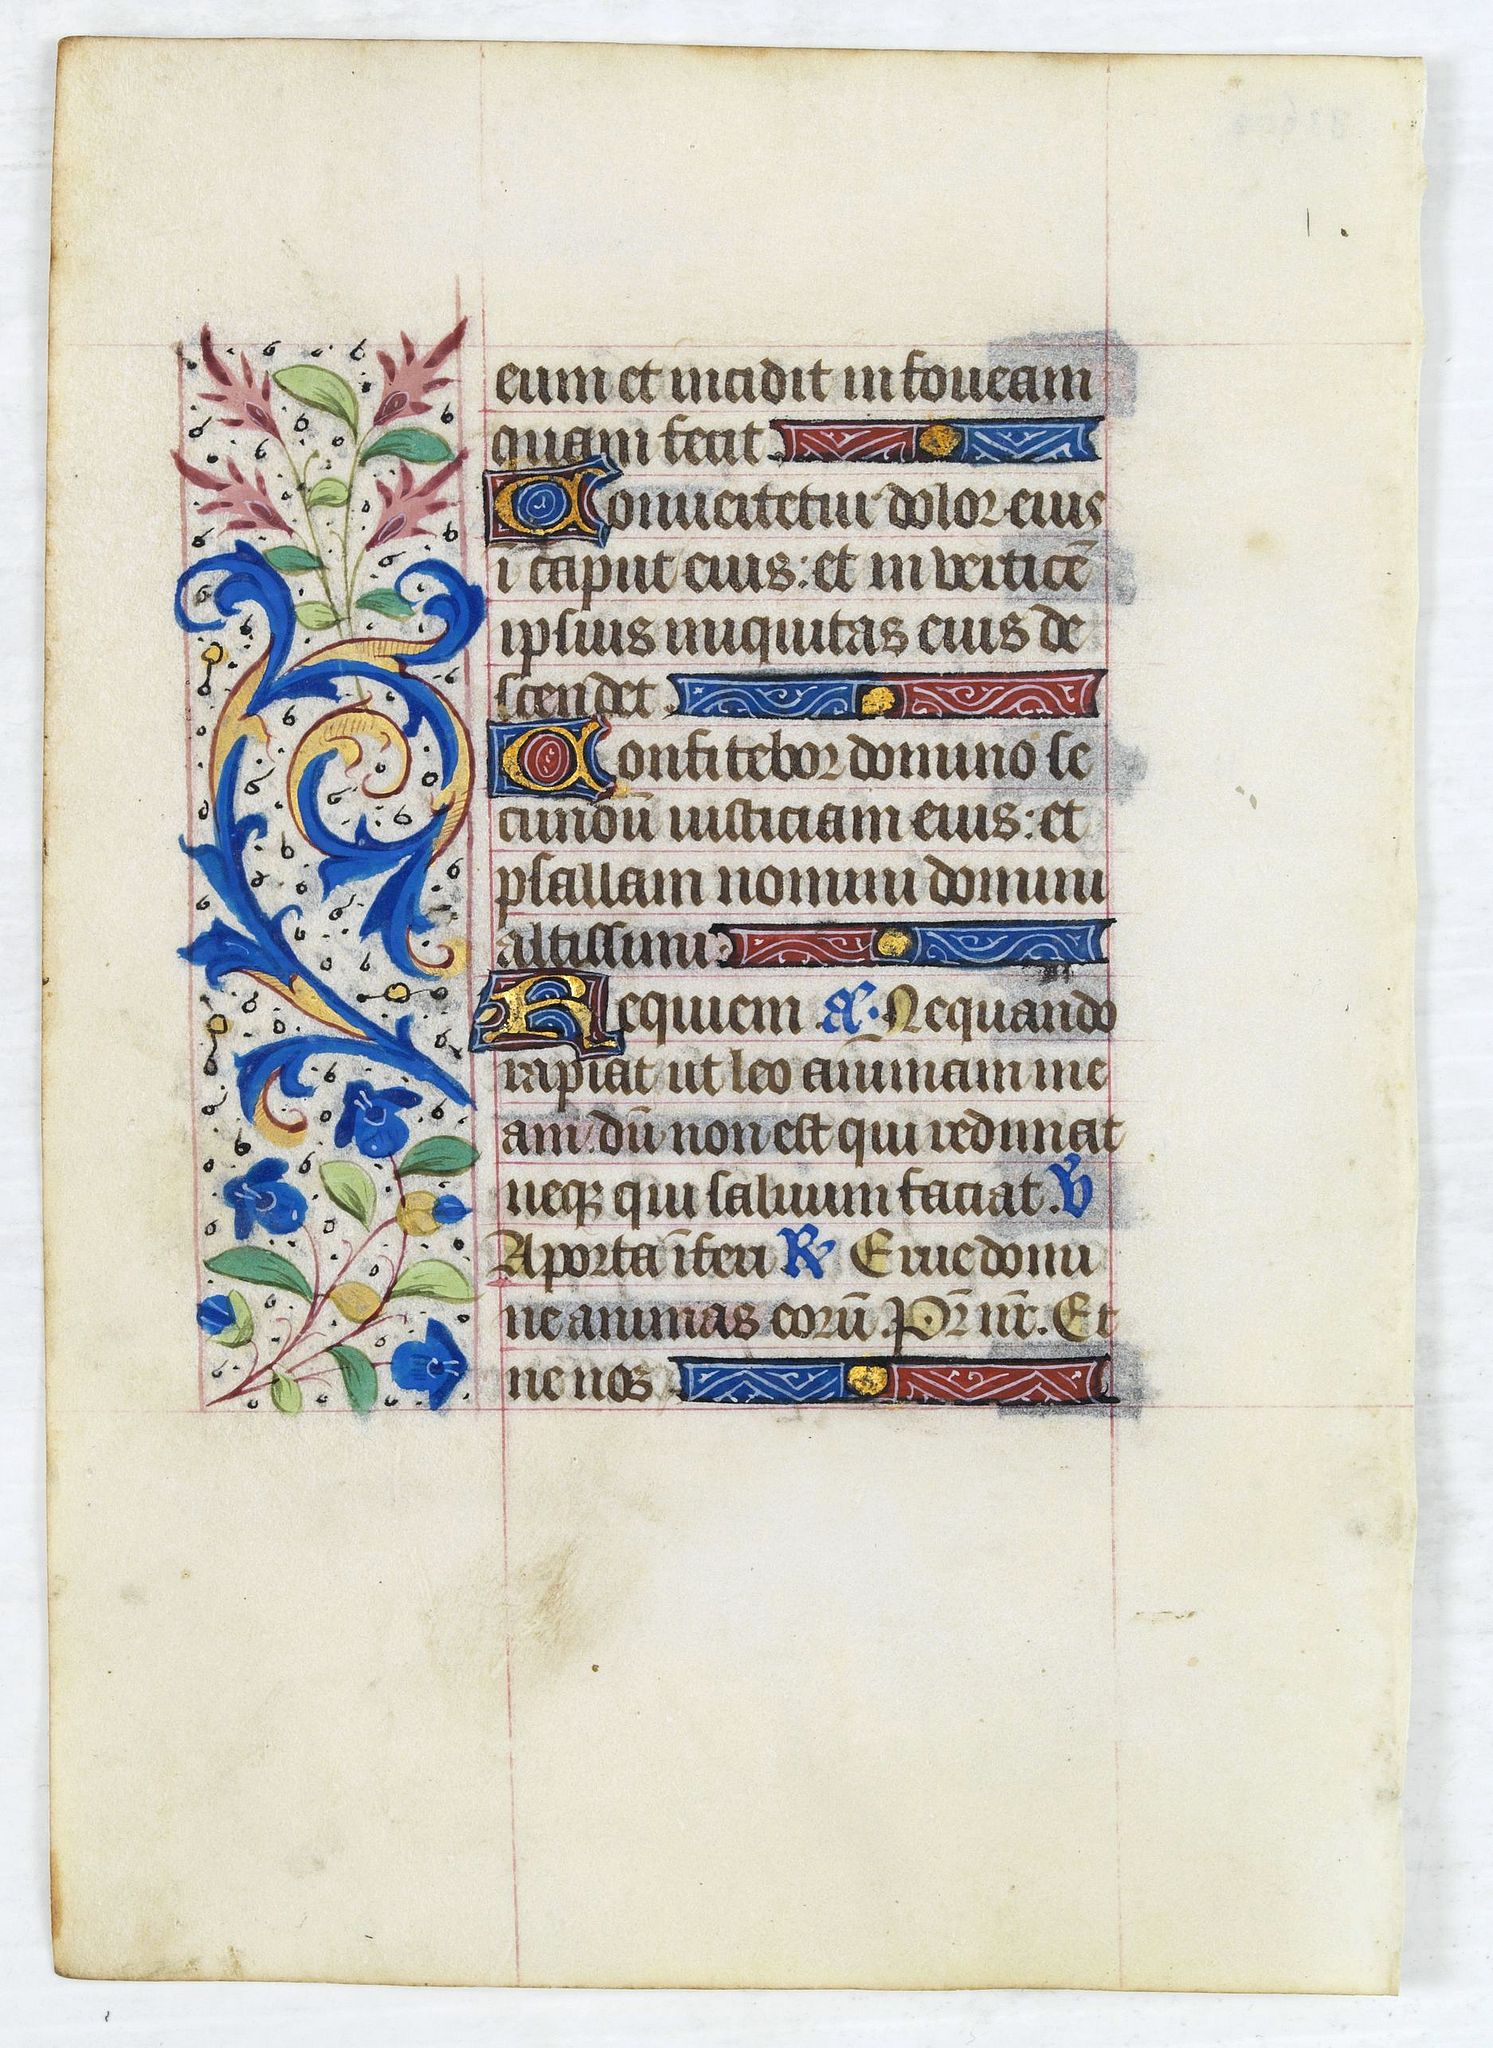 eum et incidit in foueam
quam fecit
Conuertetur dolor eius
ī caput eius: et in verticē
ipsius iniquitas eius de
scendet
Confitebor domino se
cundū iusticiam eius: et
psallam nomini domini
altissimi
Requiem A͞. Nequando
rapiat ut leo animam me
am dū non est qui redimat
neqꝫ qui saluum faciat. ℣
A porta īferi ℟ Erue domi
ne animas eorū. Pr̄ nr̄. Et
ne nos